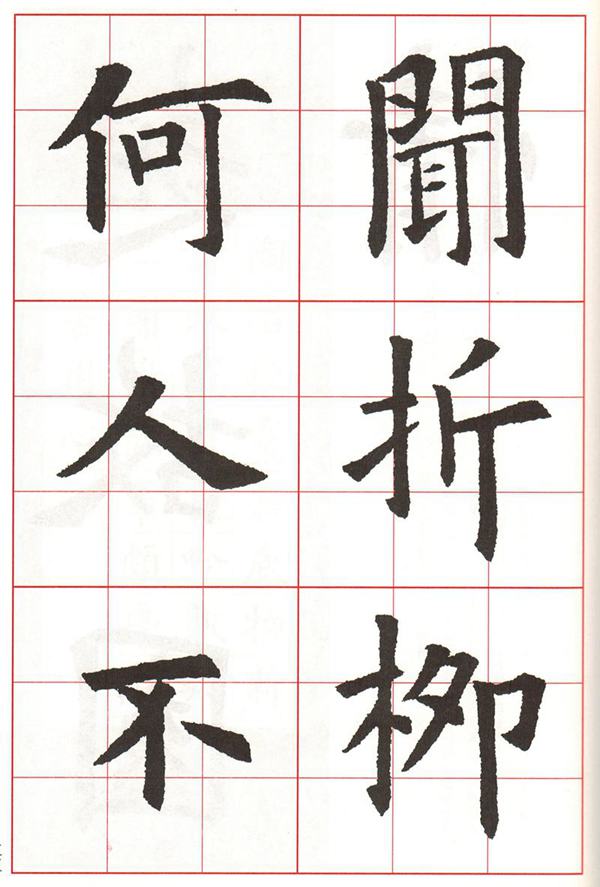 聞折柳
何人不